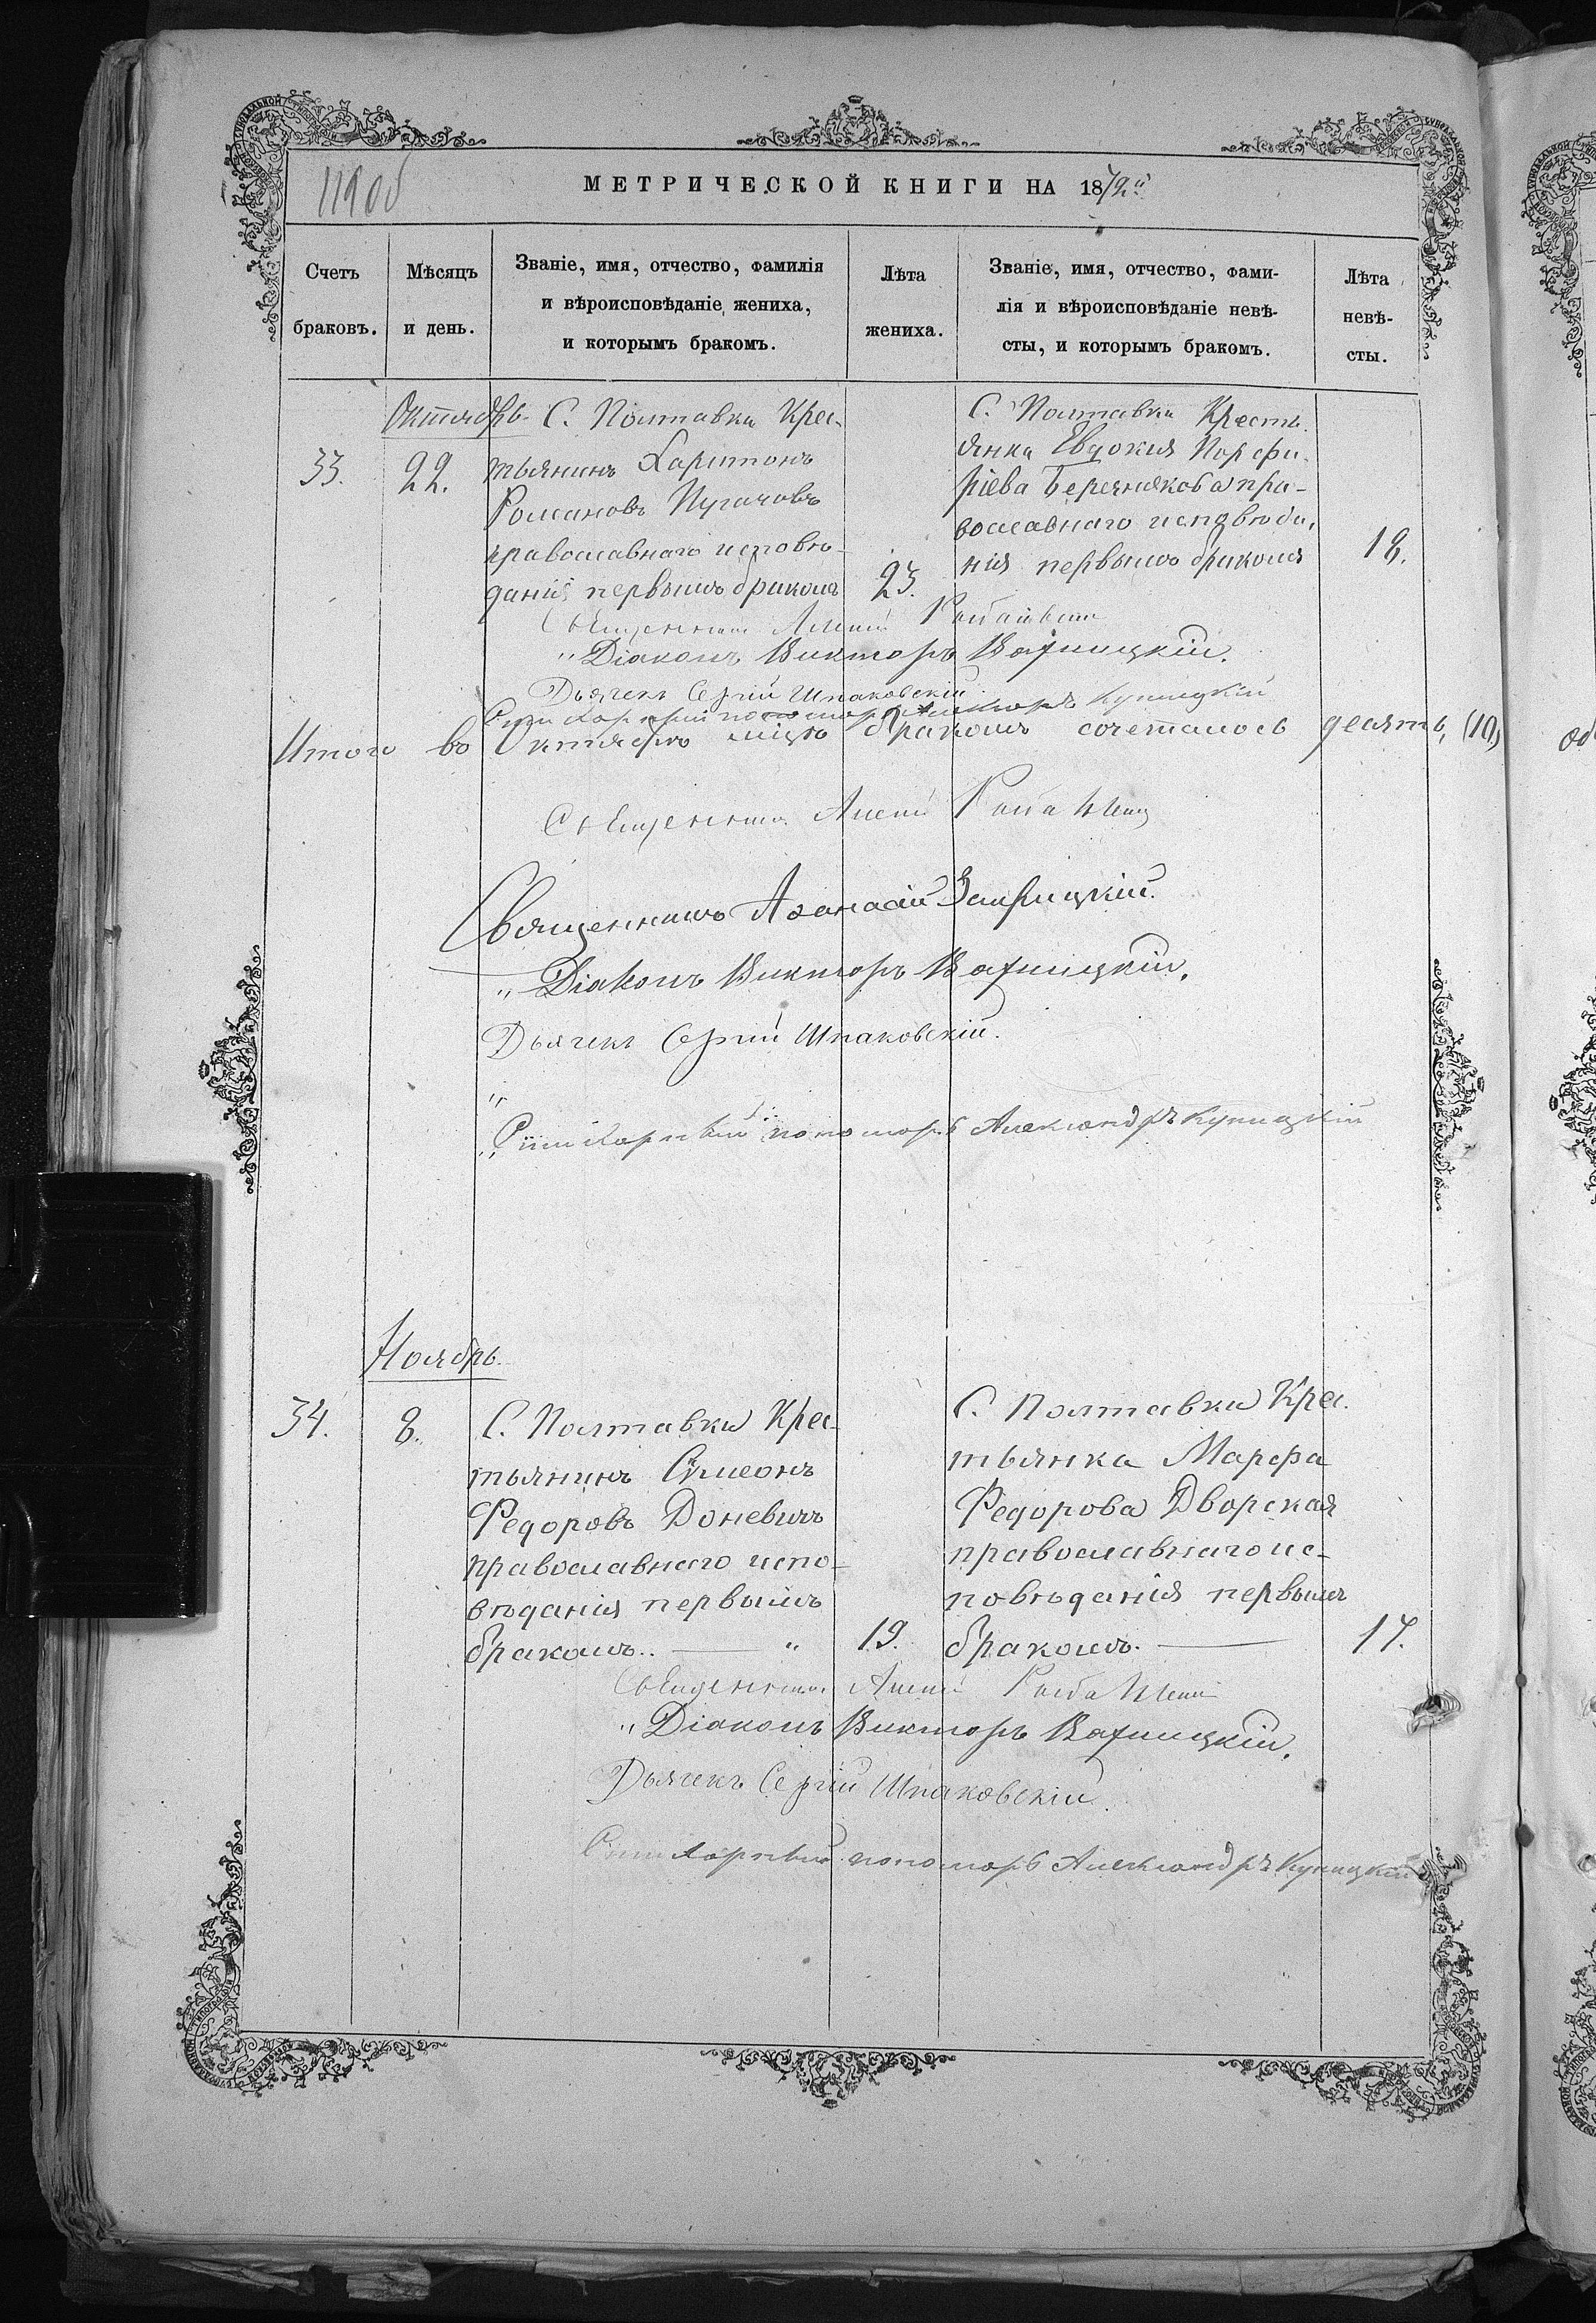 119об
МЕТРИЧЕСКОЙ КНИГИ НА 1872й
Счетъ браковъ.
Мѣсяцъ и день.
Званіе, имя, отчество, фамилія
и вѣроисповѣданіе жениха,
и которымъ бракомъ.
Лѣта жениха.
Званіе, имя, отчество, фами-
лія и вѣроисповѣданіе невѣ-
сты, и которымъ бракомъ.
Лѣта невѣ-
сты.
Октябрь
33.
22.
С. Полтавки Крес-
тьянинъ Харитонъ
Романовъ Пугачовъ
православнаго исповѣ-
данія первымъ бракомъ
23.
С. Полтавки Кресть-
янка Евдокия Порфи-
ріева Березнякова пра-
вославнаго исповѣда-
нія первымъ бракомъ
18.
Священникъ
"Діаконъ Викторъ Варницкій.
Дьячекъ Сергій Шпаковскій
Стихарный пономарь Александръ Куницкій
Итого во Октябрѣ мцѣ бракомъ сочеталось десять, (10)
Священникъ
Священникъ Аѳанасій
"Діаконъ Викторъ Варницкій.
Дьячекъ Сергій Шпаковскій.
"Стихарный пономарь Александръ Куницкій
Ноябрь.
34.
8.
С. Полтавки Крес-
тьянинъ Симеонъ
Федоровъ Доневичъ
православнаго испо-
вѣданія первымъ
бракомъ.. — "
19.
С. Полтавки Крес-
тьянка Марфа
Федорова Дворская
православнаго ис-
повѣданія первымъ
бракомъ. —
17.
Священникъ
"Діаконъ Викторъ Варницкій.
Дьячекъ Сергій Шпаковскій.
Стихарный пономарь Александръ Куницкій